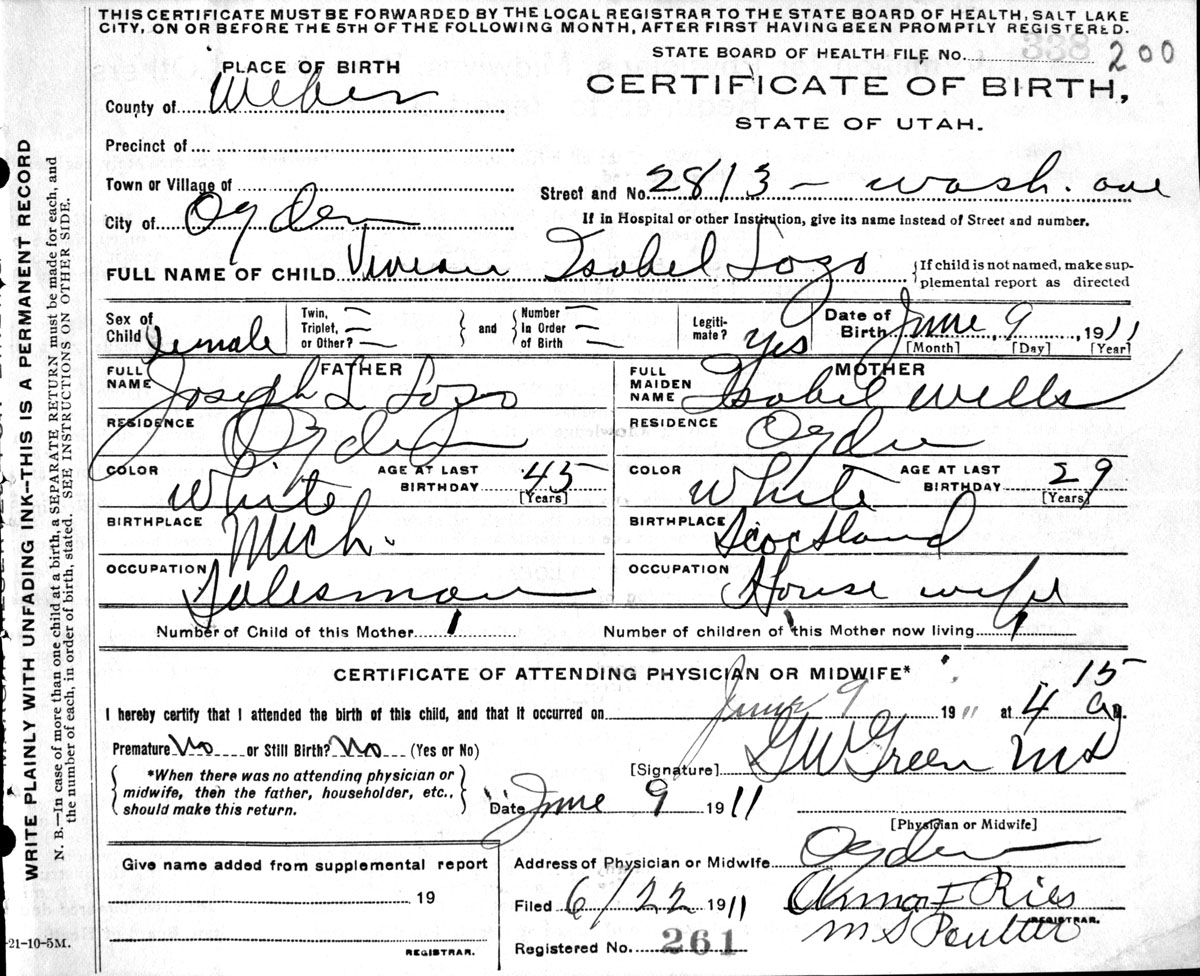 THIS CERTIFICATE MUST BE FORWARDED BY THE LOCAL REGISTRAR TO THE STATE BOARD OF HEALTH, SALT LAKE
CITY, ON OR BEFORE THE 5TH OF THE FOLLOWING MONTH, AFTER FIRST HAVING BEEN PROMPTLY REGISTERED.
STATE BOARD OF HEALTH FILE No. 338 200
PLACE OF BIRTH
CERTIFICATE OF BIRTH,
County of Weber
STATE OF UTAH.
Precinct of
Town or Village of
Street and No. 2813 - Wash. ave
City of Ogden
If in Hospital or other Institution, give its name instead of Street and number.
FULL NAME OF CHILD Vivian Isobel Lozo {If child is not named, make sup-
plemental report as directed
Sex of Child female Twin, Triplet, or Other? — and Number In Order of Birth — Legiti-mate? Yes Date of Birth June 9, 1911
[Month] [Day] [Year]
FATHER MOTHER
FULL NAME Joseph L Lozo FULL MAIDEN NAME Isobel Wells
RESIDENCE Ogden RESIDENCE Ogden
COLOR White AGE AT LAST BIRTHDAY 45 [Years] COLOR White AGE AT LAST BIRTHDAY 29 [Years]
BIRTHPLACE Mich. BIRTHPLACE Scortland
OCCUPATION Salesman OCCUPATION House wife
Number of Child of this Mother 1 Number of children of this Mother now living 1
CERTIFICATE OF ATTENDING PHYSICIAN OR MIDWIFE*
I hereby certify that I attended the birth of this child, and that it occurred on June 9 1911 at 4 15 a m.
Premature No or Still Birth? No (Yes or No)
[Signature] GW Green MD
*When there was no attending physician or
midwife, then the father, householder, etc.,
should make this return.
Date June 9 1911
[Physician or Midwife]
Give name added from supplemental report
Address of Physician or Midwife Ogden
19
Filed 6/22 1911 Anna F Ries
M S Poulter
REGISTRAR.
Registered No. 261
REGISTRAR.
-21-10-5M.
WRITE PLAINLY WITH UNFADING INK—THIS IS A PERMANENT RECORD
N. B.—In case of more than one child at a birth, a SEPARATE RETURN must be made for each, and
the number of each, in order of birth, stated. SEE INSTRUCTIONS ON OTHER SIDE.